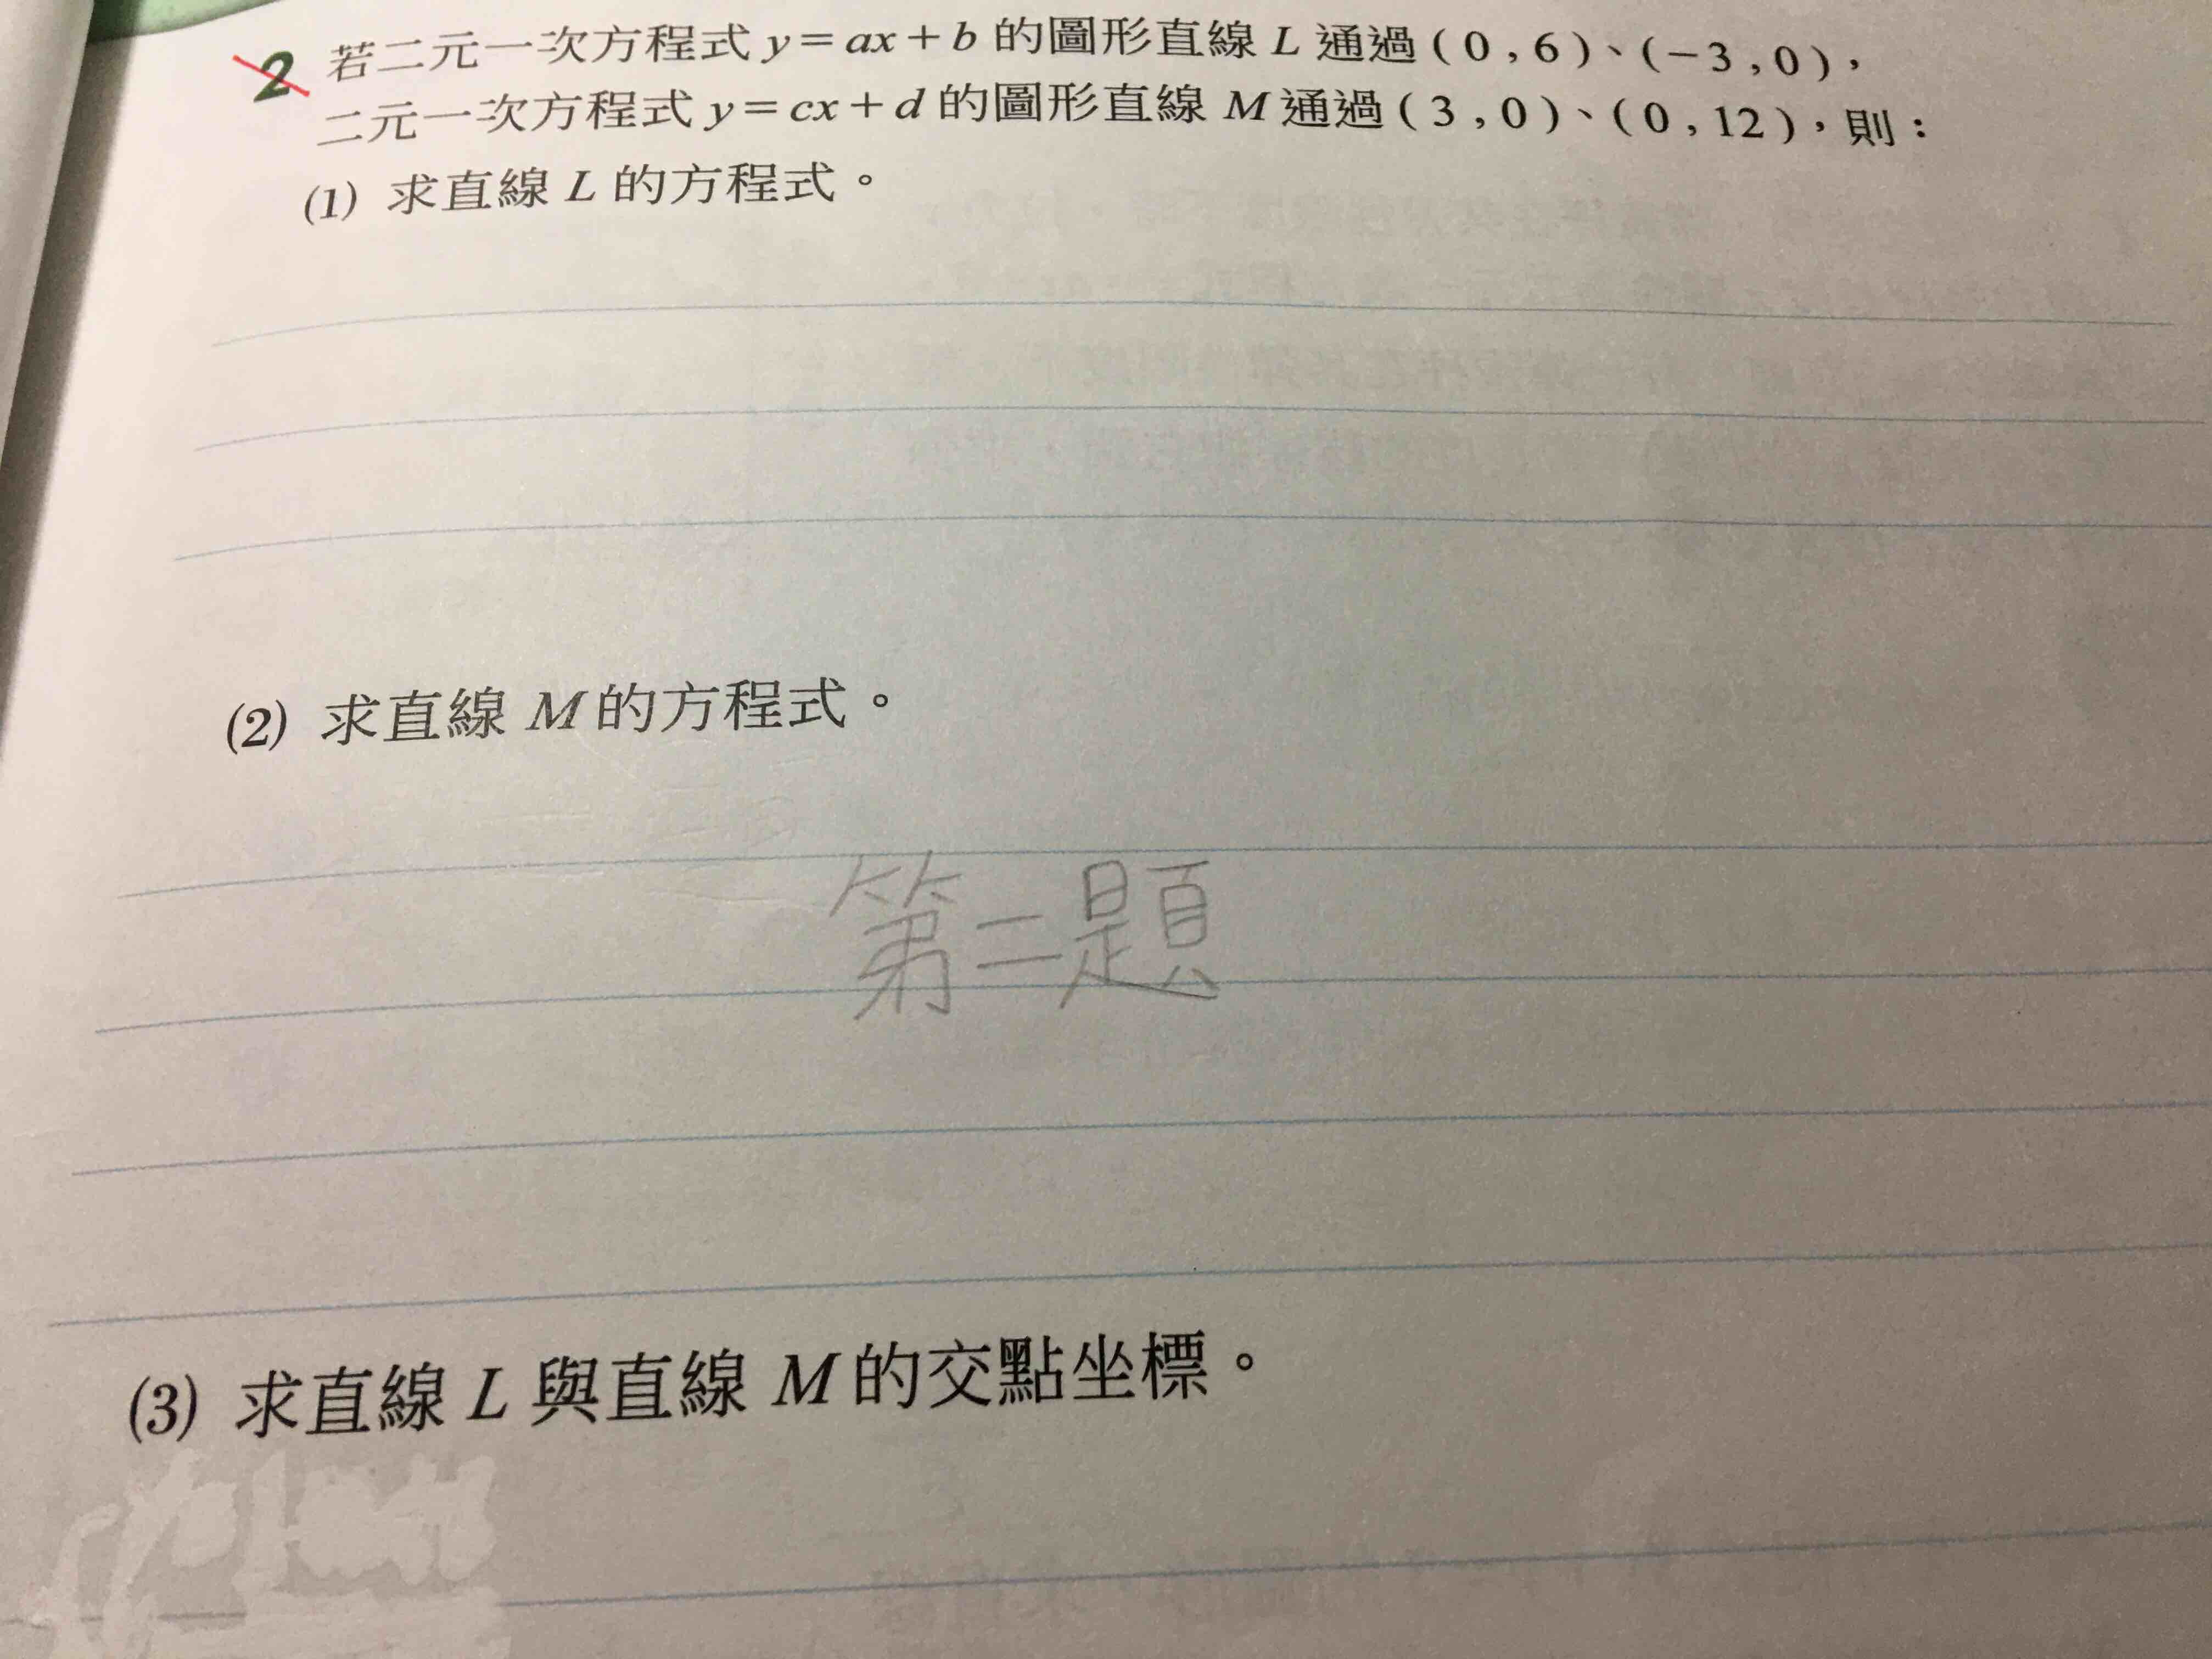 2 若二元一次方程式 y=ax+b 的圖形直線 L 通過(0,6)、(-3,0),
二元一次方程式 y=cx+d 的圖形直線 M 通過(3,0)、(0,12),則:
(1) 求直線 L 的方程式。
(2) 求直線 M 的方程式。
第二題
(3) 求直線 L 與直線 M 的交點坐標。